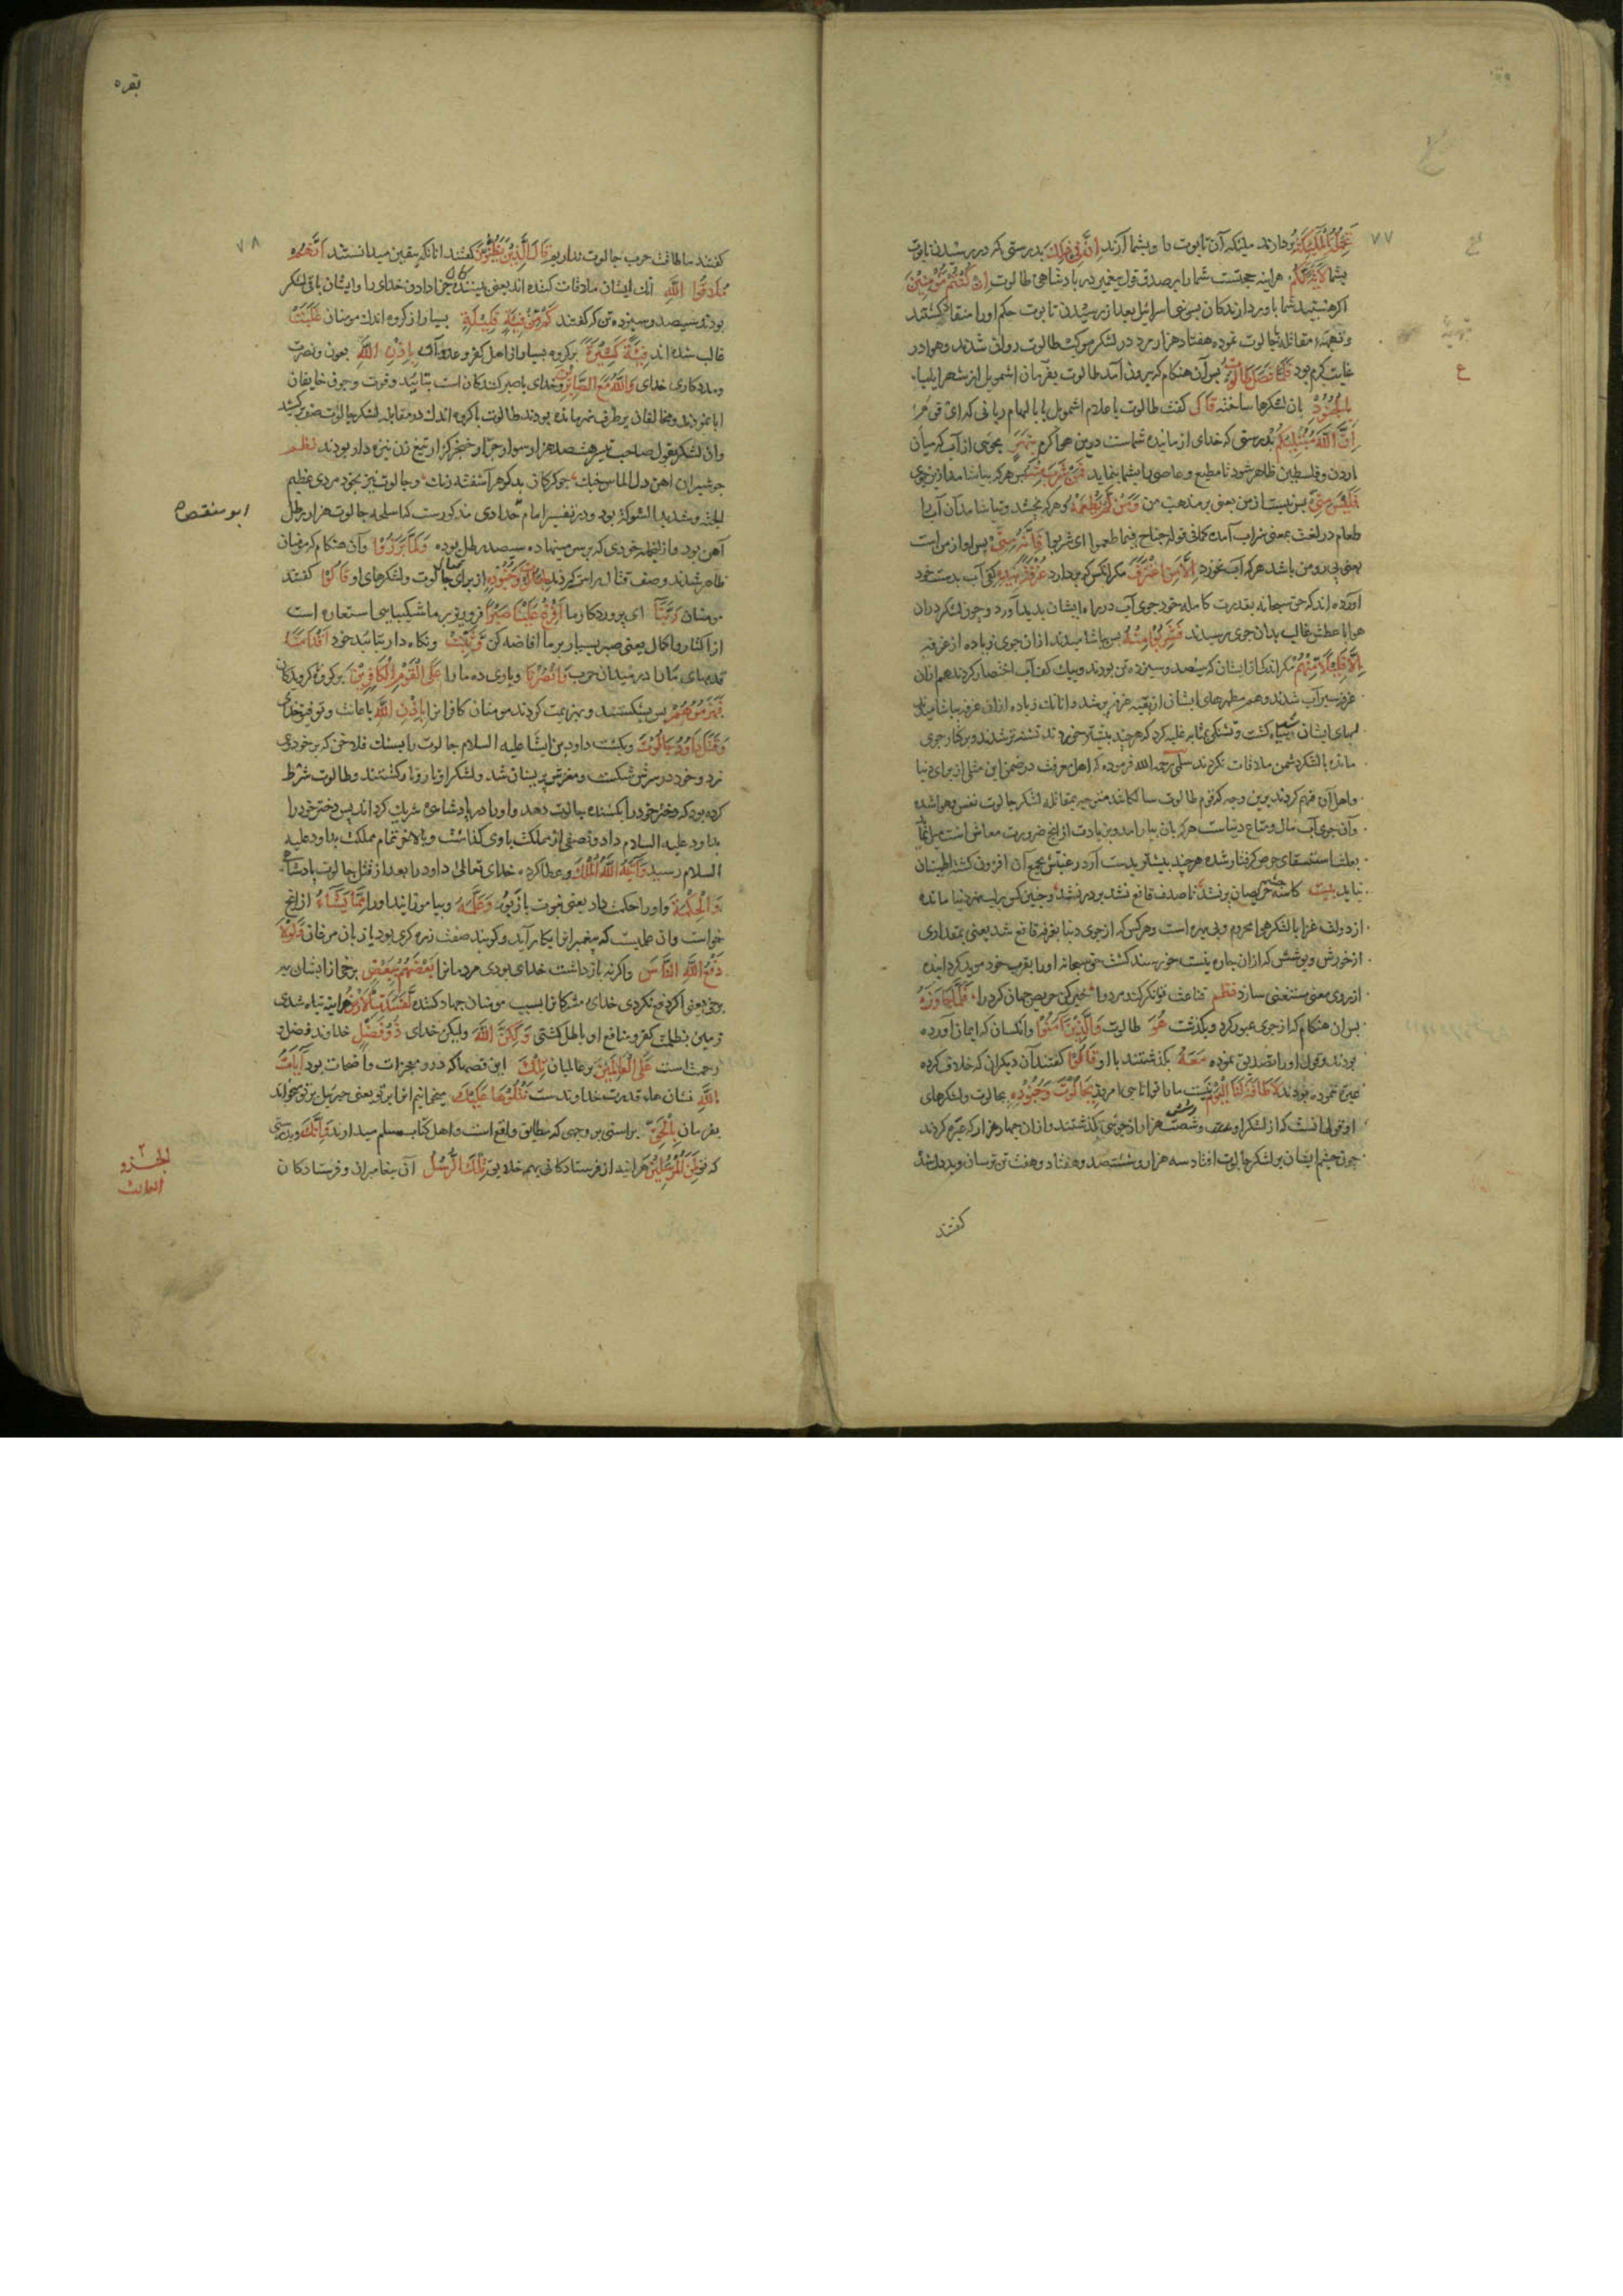 ۷۷
تَحْمِلُهُ الْمَلٰئِكَةُ بردارند ملیکه آن تابوت را و بشما آرند اِنَّ فِی ذٰلِكَ بدرستی که در رسیدن تابوت
بشما لَاٰیَةً لَكُمْ هراینه حجتست شما را بر صدق قول پیغمبر در پادشاهی طالوت اِنْ كُنْتُمْ مُؤْمِنِیْنَ
اگر هستید شما باوردارندکان پس بنی اسرائیل بعد از رسیدن تابوت حکم او را منقاد کشتند
مقاتله جالوت نموده هفتاد هزار مرد در لشکر طالوت روان شدند و هوا در
غایت کرم بود فَلَمَّا فَصَلَ طَالُوْتُ پس آن هنکام که بیرون آمد طالوت بفرمان اشمویل از شهر ایلیا
بِالْجُنُوْدِ بان لشکرها ساخته قَالَ کفت طالوت باعلام اشمویل یا بالهام ربانی که ای قوم
اِنَّ اللّٰهَ مُبْتَلِیْكُمْ بدرستی که خدای ازماینده شماست درین هوا کرم بِنَهَرٍ بجوی از آب که میان
اردن و فلسطین ظاهر شود تا مطیع و عاصی را بشما بنماید فَمَنْ شَرِبَ مِنْهُ پس هر که بیاشامد ازین جوی
فَلَیْسَ مِنِّیْ پس نیست از من یعنی بر مذهب من وَمَنْ لَمْ یَطْعَمْهُ و هر که نچشد و نیاشامد آن آب را
طعام در لغت بمعنی شراب آمده کما فی قوله جناح فیما طعموا ای شربوا فَاِنَّهُ مِنِّیْ پس او از من است
یعنی پی رو من باشد هر که آب نخورد اِلَّا مَنِ اغْتَرَفَ مکر انکس که بردارد غُرْفَةً بِیَدِهِ کفی آب بدست خود
آورده اند که حق سبحانه بقدرت کامله خود جوی آب در راه ایشان پدید آورد و چون لشکر دران
هوا با عطش غالب بدان جوی رسیدند فَشَرِبُوْا مِنْهُ پس بیاشامیدند ازان جوی زیاده از غرفه
اِلَّا قَلِیْلًا مِنْهُمْ مکر اندکی از ایشان که سیصد و سیزده تن بودند و بیک کف آب اختصار کردند هم ازان
غرفه سیراب شدند و هم مطهرهای ایشان از بقیه غرفه پر شد و انانک زیاده ازان غرفه بیاشامیدند
لبهای ایشان سیاه کشت و تشنکی بمثابه غلبه کرد که هر چند بیشتر می خوردند تشنه تر شدند و بر کنار جوی
مانده با لشکر دشمن ملاقات نکردند سلمی رحمه الله فرموده که اهل معرفت در ضمن این مثلی از برای دنیا
و اهل آن فهم کردند برین وجه که قوم طالوت سالکانند متوجه بمقاتله لشکر جالوت نفس و هوا شده
و آن جوی آب مال و متاع دنیاست هر که بان بیارامد و بزیادت از انچ ضرورت معاش است میل نماید
بعلت استسقای حرص کرفتار شده هر چند بیشتر بدست آورد رغبتش بجمع آن افزون کشته اطمینان
نیابد بیت کاسه چشم حریصان پر نشد تا صدف قانع نشد پر در نشد و چنین کس بر لب نهر دنیا مانده
از دولت غزا با لشکر هوا محروم و بی بهره است و هر کس که از جوی دنیا بغرفه قانع شد یعنی بمقداری
از خورش و پوشش که ازان چاره نیست خورسند کشت حق سبحانه او را بقرب خود موید کردانیده
از بروی معنی مستغنی سازد نظم قناعت توانکر کند مرد را خبر کن حریص جهان کرد را فَلَمَّا جَاوَزَهُ
پس ان هنکام که از جوی عبور کرد و بکذشت هُوَ طالوت وَالَّذِیْنَ اٰمَنُوْا و انکسان که ایمان آورده
بودند و قول او را تصدیق نموده مَعَهُ بکذشتند با او قَالُوْا کفتند آن دیکرانی که خلاف کرده
بودند لَا طَاقَةَ لَنَا الْیَوْمَ نیست ما را توانایی امروز بِجَالُوْتَ وَجُنُوْدِهِ بجالوت و لشکرهای
او قولی انست که از لشکر او شصت و شش هزار از جوی نکذشتند و ازان چهار هزار که عبره کردند
چون چشم ایشان بر لشکر جالوت افتاد سه هزار و ششصد و هفتاد و هفت تن ترسان و بددل شد
کفتند
بقره
۷۸
کفتند ما طاقت حرب جالوت نداریم قَالَ الَّذِیْنَ یَظُنُّوْنَ کفتند انانکه بیقین میدانستند اَنَّهُمْ
مُلٰقُوا اللّٰهِ آنک ایشان ملاقات کننده اند یعنی بیننده جزا دادن خدای را و ایشان باقی لشکر
بودند سیصد و سیزده تن که کفتند كَمْ مِنْ فِئَةٍ قَلِیْلَةٍ بسیار از کروه اندک مومنان غَلَبَتْ
غالب شده اند فِئَةً كَثِیْرَةً بر کروه بسیار از اهل کفر و عدوان بِاِذْنِ اللّٰهِ بعون و نصرت
و مددکاری خدای وَاللّٰهُ مَعَ الصَّابِرِیْنَ و خدای با صبر کنندکان است بتایید و قوت و چون خایفان
ابا نمودند و مخالفان بر طرف نهر مانده بودند طالوت با کروه اندک در مقابله لشکر جالوت صف برکشید
و ان لشکر بقول صاحب تیسیر هشتصد هزار سوار جرار خنجر کزار تیغ زن نیزه دار بودند نظم
چو شیران اهن دل الماس چنک چو کرکان بدکوهر آشفته رنک و جالوت نیز بخود مردی عظیم
الجثه و شدید الشوکة بود و در تفسیر امام حدادی مذکورست که اسلحه جالوت هزار رطل
ابو منقصه
آهن بود و از انجمله خودی که بر سر مینهاد سیصد رطل بوده وَلَمَّا بَرَزُوْا و آن هنکام که مومنان
ظاهر شدند و صف قتال براستند لِجَالُوْتَ وَجُنُوْدِهِ از برای قتال جالوت و لشکرهای او قَالُوْا کفتند
مومنان رَبَّنَا ای پروردکار ما اَفْرِغْ عَلَیْنَا صَبْرًا فرو ریز بر ما شکیبایی استعاره است
از اکثار و اکمال یعنی صبر بسیار بر ما افاضه کن وَثَبِّتْ و نکاه دار بتایید خود اَقْدَامَنَا
قدمهای ما را در میدان حرب وَانْصُرْنَا و یاری ده ما را عَلَى الْقَوْمِ الْكَافِرِیْنَ بر کروه کرویدکان
فَهَزَمُوْهُمْ پس بشکستند و بهزیمت کردند مومنان کافرانرا بِاِذْنِ اللّٰهِ باعانت و توفیق خدای
وَقَتَلَ دَاوُدُ جَالُوْتَ و بکشت داود بن ایشا علیه السلام جالوت را بسنک فلاخن که بر خودش
زد و خود در سرش شکست و مغزش پریشان شد و لشکر او تار و مار کشتند و طالوت شرط
کرده بود که دختر خود را بکشنده جالوت دهد و او را در پادشاهی شریک کرداند پس دختر خود را
بداود علیه السلام داد و نصفی از مملکت باوی کذاشت و بالاخر تمام مملکت بداود علیه
السلام رسید وَاٰتٰیهُ اللّٰهُ الْمُلْكَ و عطا کرد خدای تعالی داود را بعد از قتل جالوت پادشاه
وَالْحِكْمَةَ و او را حکمت داد یعنی نبوت با زبور وَعَلَّمَهُ و بیاموزانید او را مِمَّا یَشَاءُ از انچ
خواست و ان علمیست که پیغمبرانرا بکار آید و کویند صفت زره کری بود یا زبان مرغان وَلَوْلَا
دَفْعُ اللّٰهِ النَّاسَ و اکر نه بازداشت خدای بودی مردمانرا بَعْضَهُمْ بِبَعْضٍ برخی از ایشان به
برخی یعنی اکر دفع نکردی خدای مشرکانرا بسبب مومنان جهاد کننده لَفَسَدَتِ الْاَرْضُ هراینه تباه شدی
زمین بظلمت کفر و منافع او باطل کشتی وَلٰكِنَّ اللّٰهَ و لیکن خدای ذُوْ فَضْلٍ خداوند فضل و
رحمت است عَلَى الْعَالَمِیْنَ بر عالمیان تِلْكَ این قصها که درو معجزات واضحات بود اٰیَاتُ
اللّٰهِ نشان های قدرت خداوندست نَتْلُوْهَا عَلَیْكَ میخوانیم انرا بر تو یعنی جبرییل بر تو میخواند
بفرمان بِالْحَقِّ براستی بر وجهی که مطابق واقع است و اهل کتاب مسلم میدارند وَاِنَّكَ و بدرستی
که تو لَمِنَ الْمُرْسَلِیْنَ هراینه از فرستادکانی بهمه خلایق تِلْكَ الرُّسُلُ آن پیغامبران و فرستادکان
الجزو
الثالث